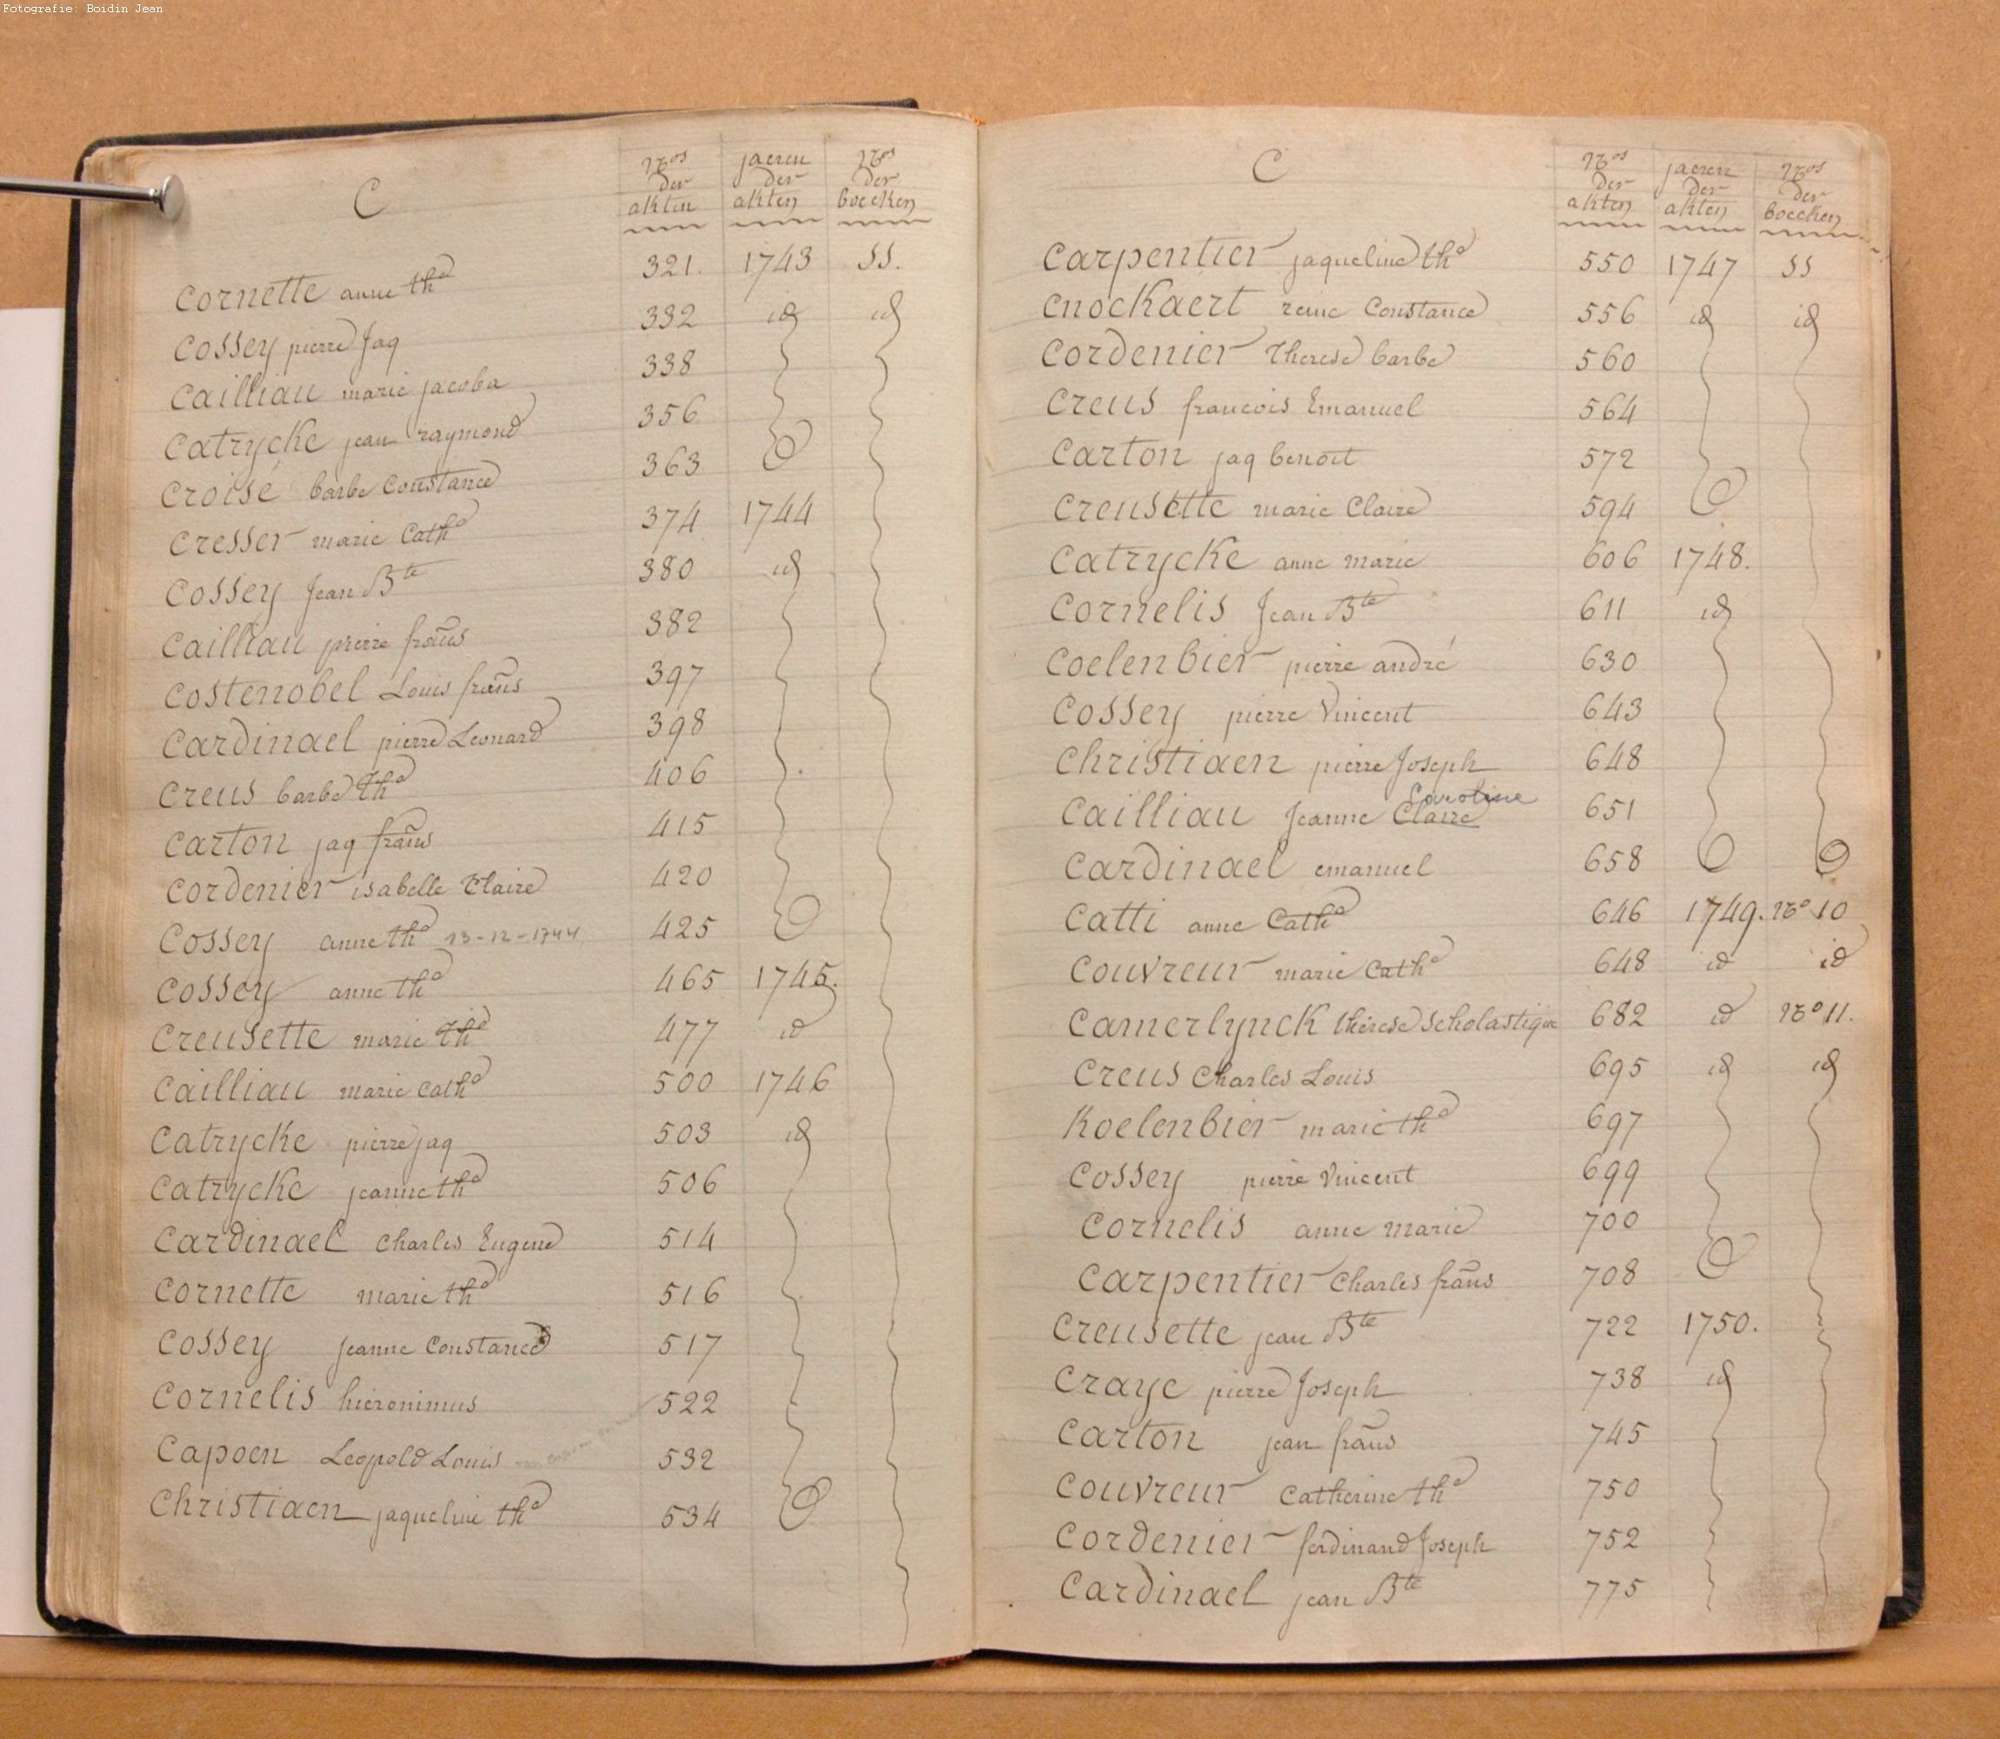 Fotografie: Boidin Jean
C
Nos der akten jaeren der akten Nos der boecken
Cornette anne thᵃ 321. 1743 SS.
Cossey pierre Jaq 332 id id
Cailliau marie jacoba 338
Catrycke jean raymond 356
Croisé barbe Constance 363
Cresser marie Cathᵃ 374 1744
Cossey Jean Bte 380 id
Cailliau pierre frans 382
Costenobel Louis frans 397
Cardinael pierre Leonard 398
Creus barbe Thᵃ 406
Carton jaq frans 415
Cordenier isabelle Claire 420
Cossey anne thᵃ 13-12-1744 425
Cossey anne thᵃ 465 1745.
Creusette marie thᵃ 477 id
Cailliau marie Cathᵃ 500 1746
Catrycke pierre jaq 503 id
Catrycke jeanne thᵃ 506
Cardinael Charles Eugene 514
Cornette marie thᵃ 516
Cossey jeanne Constance 517
Cornelis hieronimus 522
Capoen Leopold Louis 532
Christiaen jaqueline thᵃ 534
C
Nos der akten jaeren der akten Nos der boecken
Carpentier jaqueline thᵃ 550 1747 SS
Cnockaert reine Constance 556 id id
Cordenier Therese barbe 560
Creus francois Emanuel 564
Carton jaq benoit 572
Creusette marie Claire 594
Catrycke anne marie 606 1748.
Cornelis Jean Bte 611 id
Coelenbier pierre andré 630
Cossey pierre Vincent 643
Christiaen pierre Joseph 648
Caroline
Cailliau Jeanne Claire 651
Cardinael emanuel 658
Catti anne Cathᵃ 646 1749. No 10
Couvreur marie Cathᵃ 648 id id
Camerlynck thérese Scholastique 682 id No 11.
Creus Charles Louis 695 id id
Koelenbier marie thᵃ 697
Cossey pierre Vincent 699
Cornelis anne marie 700
Carpentier Charles frans 708
Creusette jean Bte 722 1750.
Craye pierre Joseph 738 id
Carton jean frans 745
Couvreur Catherine thᵃ 750
Cordenier ferdinand Joseph 752
Cardinael jean Bte 775